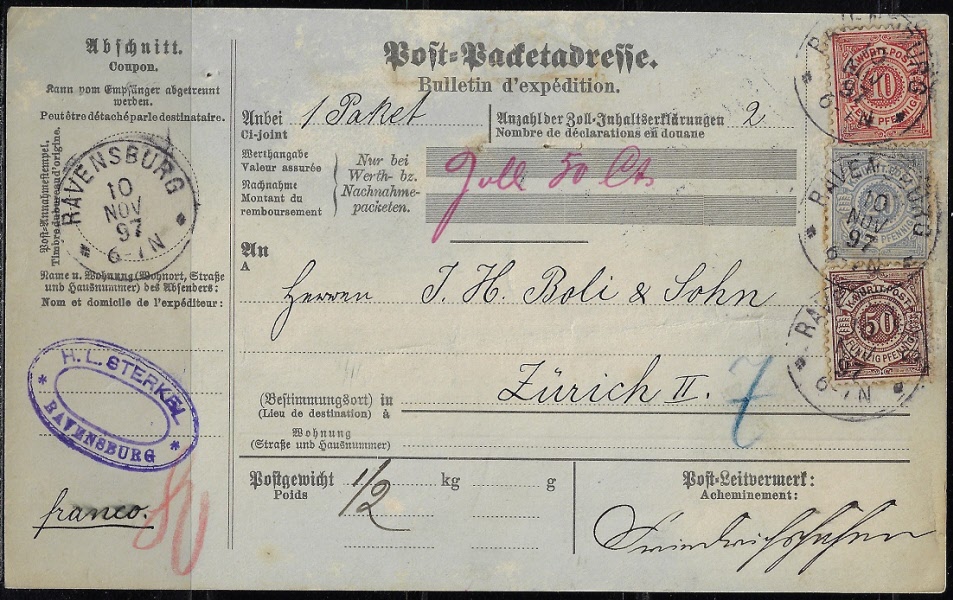 Abschnitt.
Coupon.
Kann vom Empfänger abgetrennt
werden.
Peut être détaché par le destinataire.
Post-Annahmestempel.
Timbre du bureau d'origine.
RAVENSBURG
10
NOV
97
6-7N
Name u. Wohnung (Wohnort, Straße
und Hausnummer) des Absenders:
Nom et domicile de l'expéditeur:
H. L. STERKEL
RAVENSBURG
franco.
80
Post-Packetadresse.
Bulletin d'expédition.
Anbei 1 Paket
Ci-joint
Anzahl der Zoll-Inhaltserklärungen 2
Nombre de déclarations en douane
Werthangabe
Valeur assurée
Nachnahme
Montant du
remboursement
Nur bei
Werth- bz.
Nachnahme-
packeten.
50 Cts
An
A
Herren J. H. Boli & Sohn
(Bestimmungsort) in Zürich II.
(Lieu de destination) à
7
Wohnung
(Straße und Hausnummer)
Postgewicht 1/2 kg g
Poids
Post-Leitvermerk:
Acheminement:
Friedrichshafen
K. WÜRTT. POST
10
PFENNIG
RAVENSBURG
10
NOV
97
K. WÜRTT. POST
50
FÜNFZIG PFENNIG